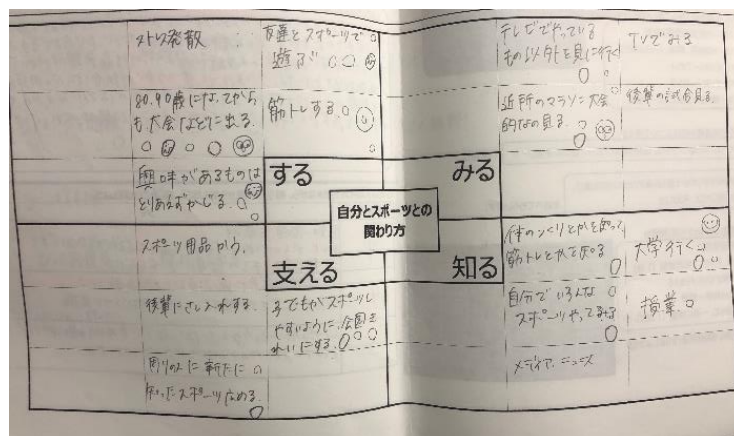 ストレス発散
友達とスポーツで
遊ぶ
テレビでやっている
もの以外を見に行く
TVでみる
80,90歳になってから
も大会などに出る。
筋トレする。
近所のマラソン大会
的なの見る。
後輩の試合見る。
興味があるものは
とりあえずかじる。
する
みる
自分とスポーツとの
関わり方
支える
知る
スポーツ用品かう。
体のつくりとかを知って
筋トレとかを知る
大学行く
後輩にさしいれする。
子どもがスポーツし
やすいように、公園き
れいにする。
自分でいろんな
スポーツやってみる
授業。
周りの人に新たに
知ったスポーツ広める。
メディア、ニュース